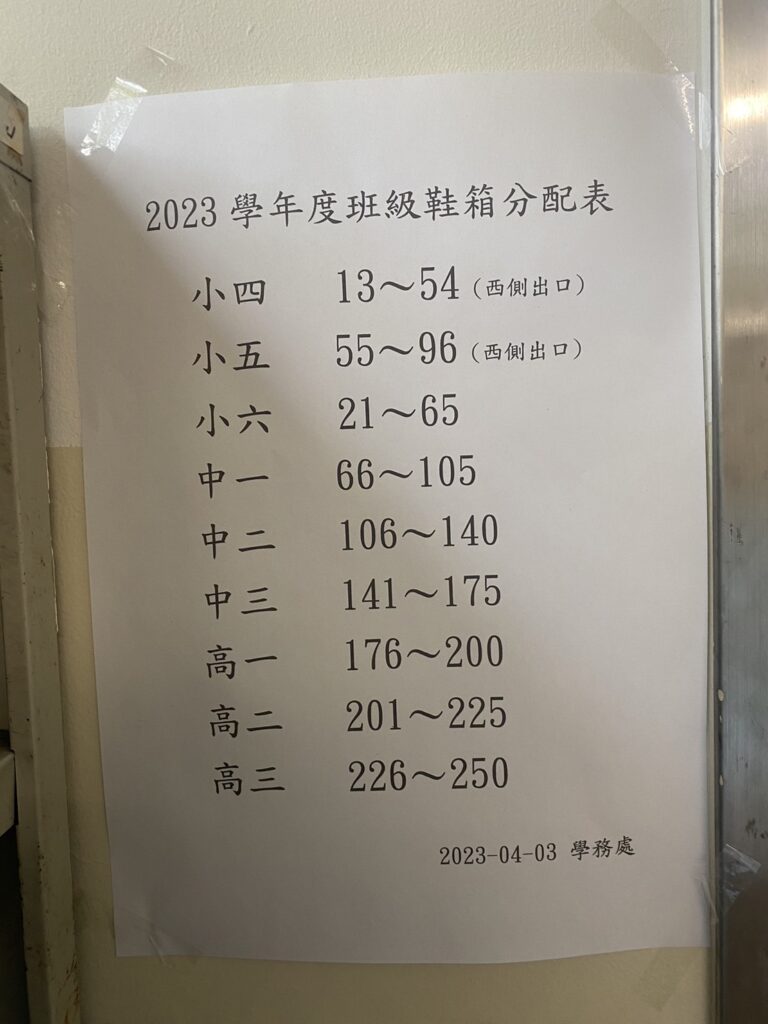 2023 學年度班級鞋箱分配表
小四 13～54 (西側出口)
小五 55～96 (西側出口)
小六 21～65
中一 66～105
中二 106～140
中三 141～175
高一 176～200
高二 201～225
高三 226～250
2023-04-03 學務處